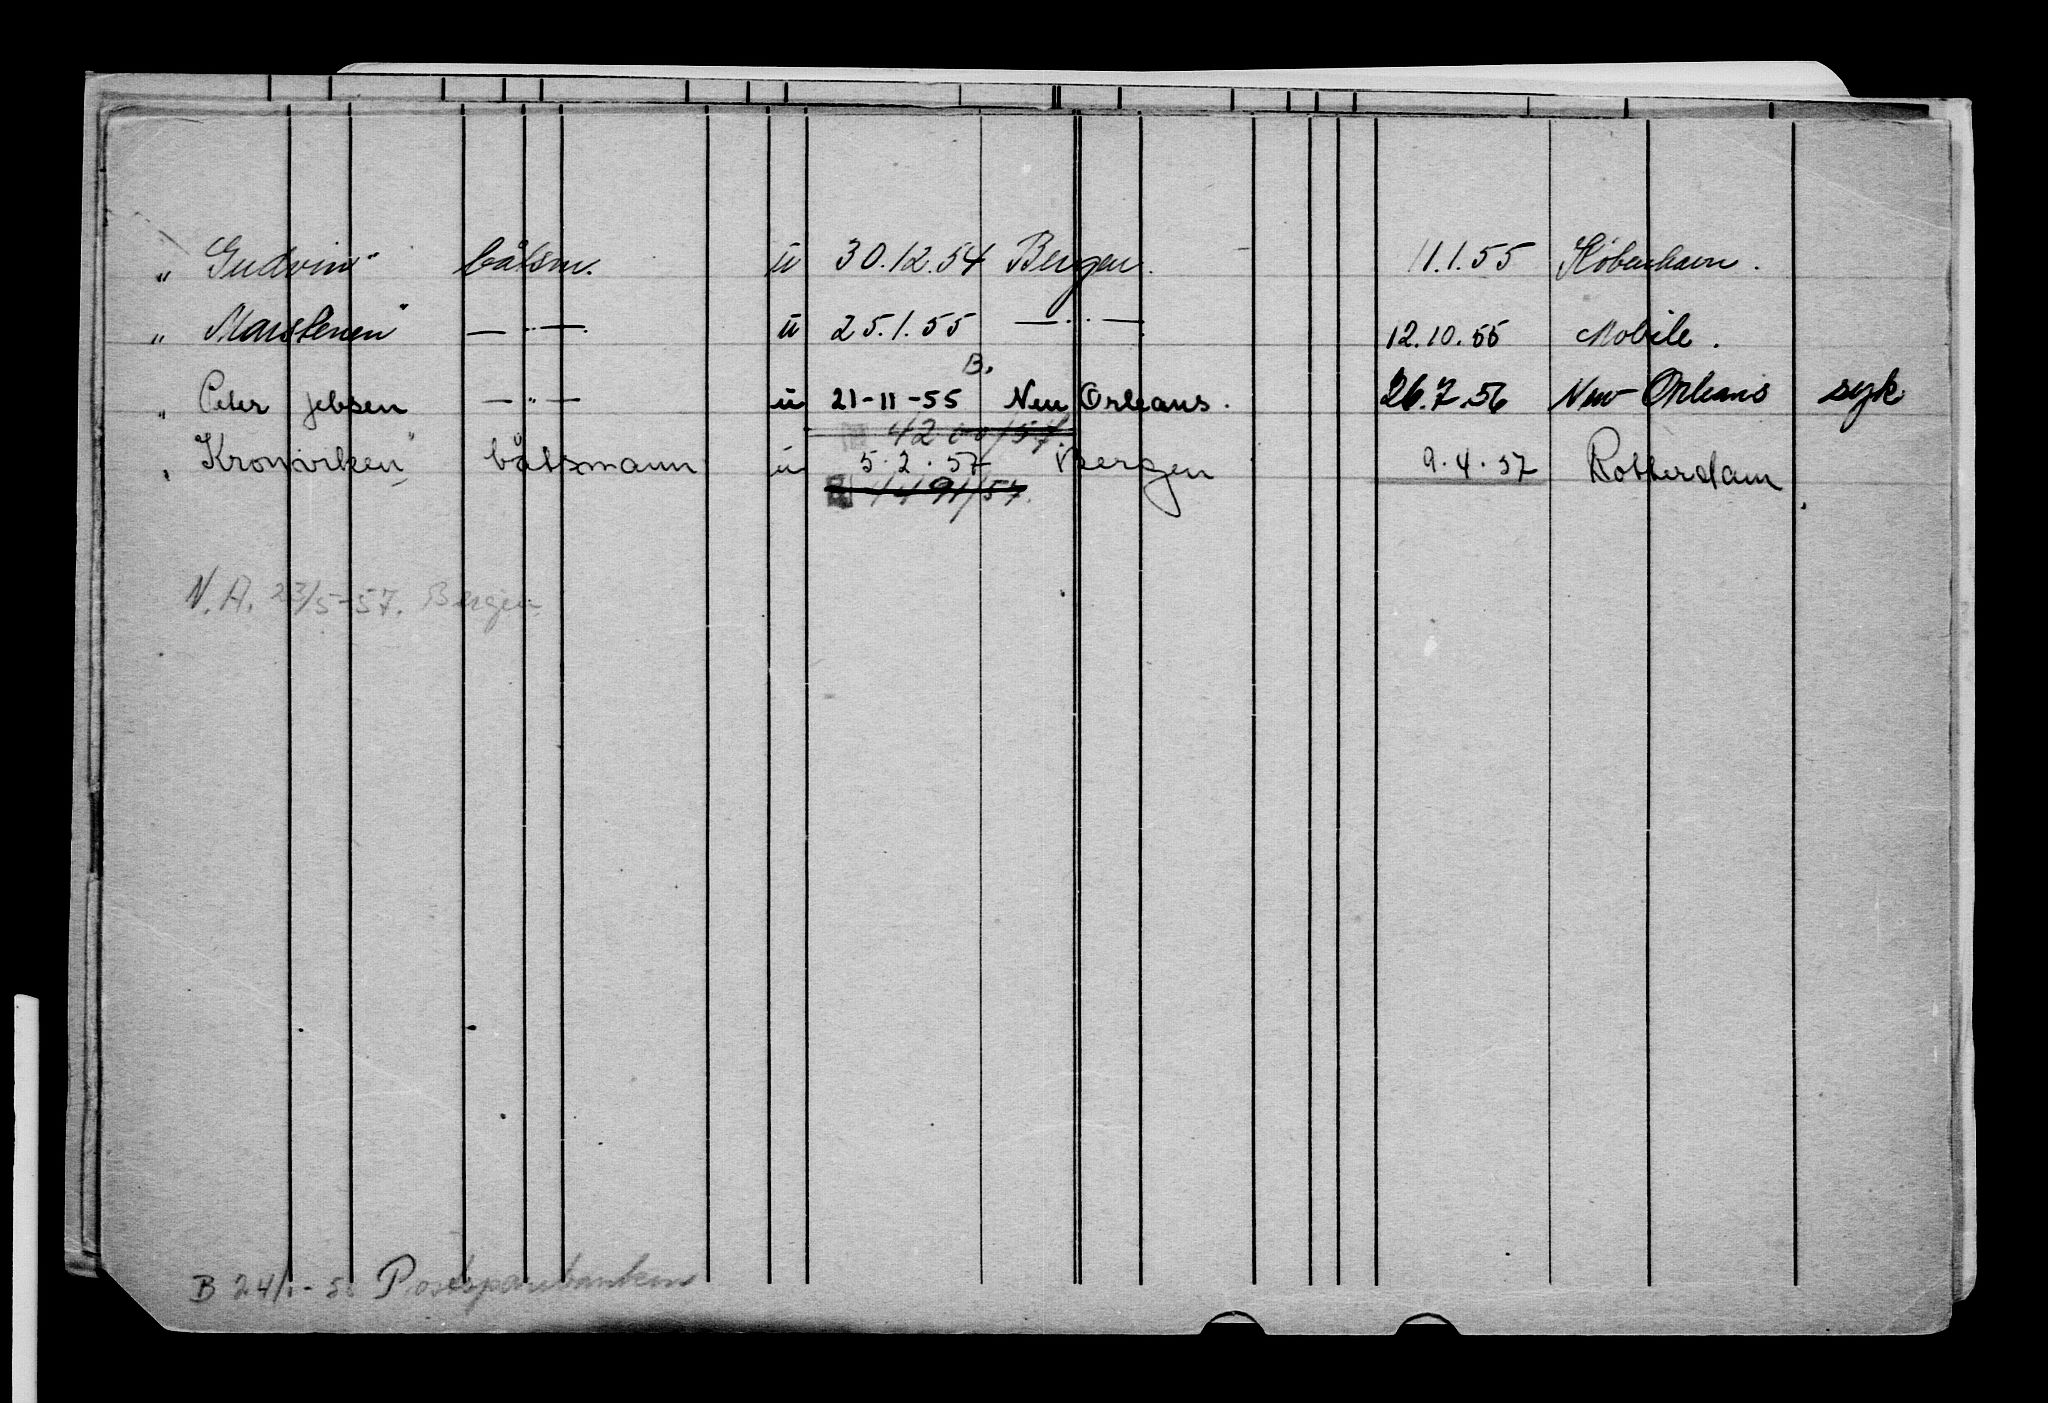 „ Gudvin" båtsm. u 30.12.54 Bergen. 11.1.55 København.
„ Marstenen" — " — u 25.1.55 — " — 12.10.55 Mobile.
B.
„ Peter Jebsen — " — u 21-11-55 New Orleans. 26.7.56 New Orleans syk
4200/57.
„ Kronviken" båtsmann u 5.2.57 Bergen 9.4.57 Rotterdam.
4491/57.
N.A. 23/5-57. Bergen
B 24/ Postsparebanken